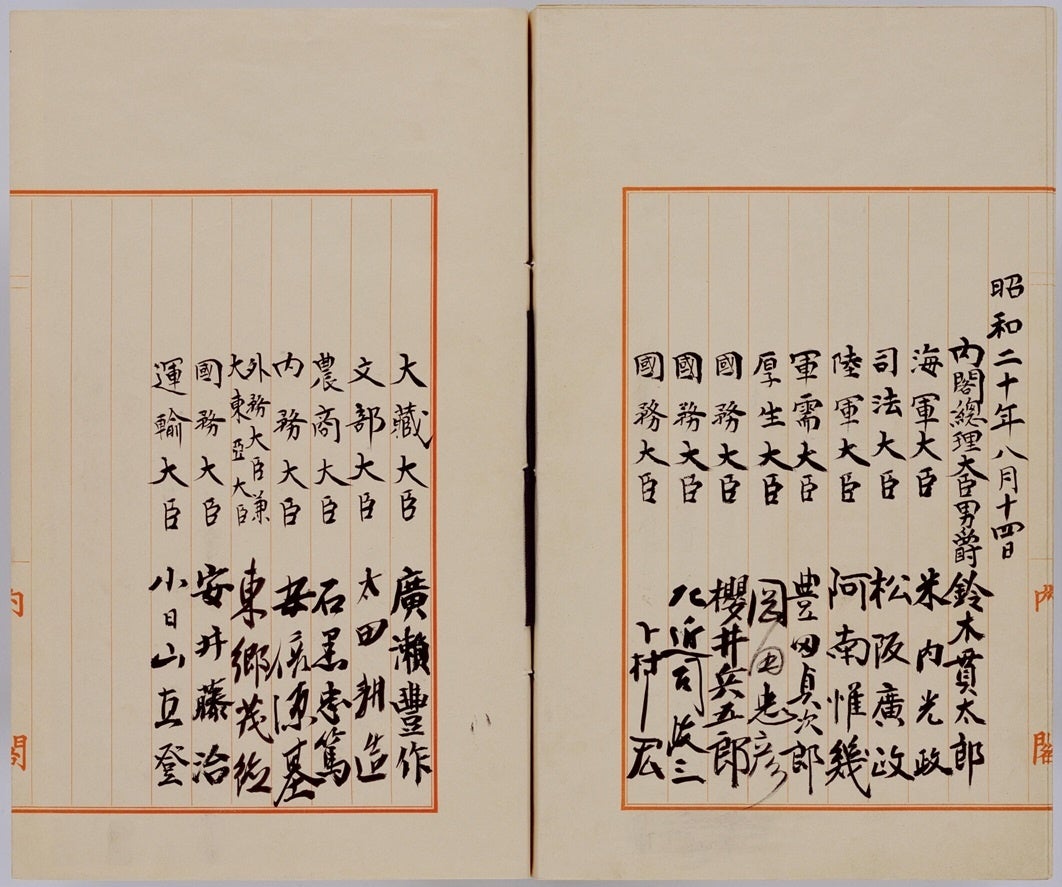 昭和二十年八月十四日
内閣總理大臣男爵鈴木貫太郎
海軍大臣 米内光政
司法大臣 松阪廣政
陸軍大臣 阿南惟幾
軍需大臣 豊田貞次郎
厚生大臣 岡田忠彦
國務大臣 櫻井兵五郎
國務大臣 左近司政三
國務大臣 下村宏
大藏大臣 廣瀨豐作
文部大臣 太田耕造
農商大臣 石黑忠篤
内務大臣 安倍源基
外務大臣兼
大東亞大臣 東郷茂徳
國務大臣 安井藤治
運輸大臣 小日山直登
内閣
内閣